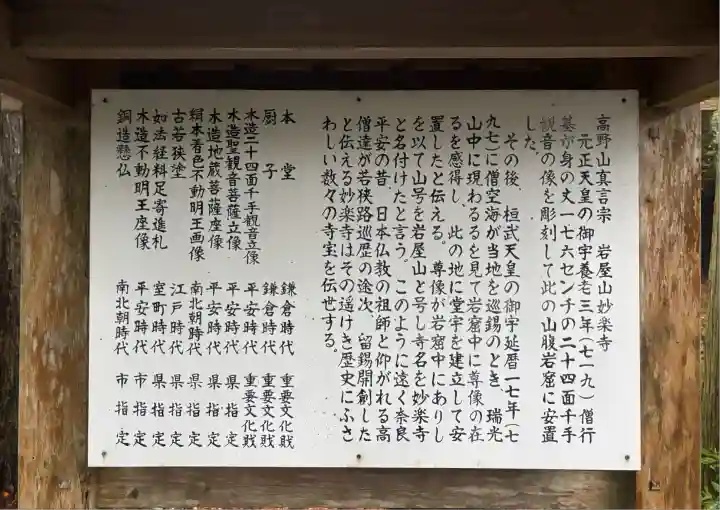 高野山真言宗　岩屋山妙楽寺
元正天皇の御宇養老三年（七一九）僧行
基が身の丈一七六センチの二十四面千手
観音の像を彫刻して此の山腹岩窟に安置
した。
その後、桓武天皇の御宇延暦一七年（七
九七）に僧空海が当地を巡錫のとき、瑞光
山中に現わるるを見て岩窟中に尊像の在
るを感得し、此の地に堂宇を建立して安
置したと伝える。尊像が岩窟中にありし
を以て山号を岩屋山と号し寺名を妙楽寺
と名付けたと言う。このように遠く奈良
平安の昔、日本仏教の祖師と仰がれる高
僧達が若狭路巡歴の途次、留錫開創した
と伝える妙楽寺はその遥けき歴史にふさ
わしい数々の寺宝を伝せする。
本堂　鎌倉時代　重要文化財
厨子　鎌倉時代　重要文化財
木造二十四面千手観音立像　平安時代　重要文化財
木造聖観音菩薩立像　平安時代　県指定
木造地蔵菩薩座像　平安時代　県指定
絹本着色不動明王画像　南北朝時代　県指定
古若狭塗　江戸時代　県指定
如法経料足寄進札　室町時代　県指定
木造不動明王座像　平安時代　市指定
銅造懸仏　南北朝時代　市指定